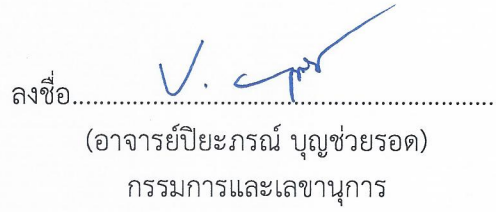 ลงชื่อ................................................................
(อาจารย์ปิยะภรณ์ บุญช่วยรอด)
กรรมการและเลขานุการ